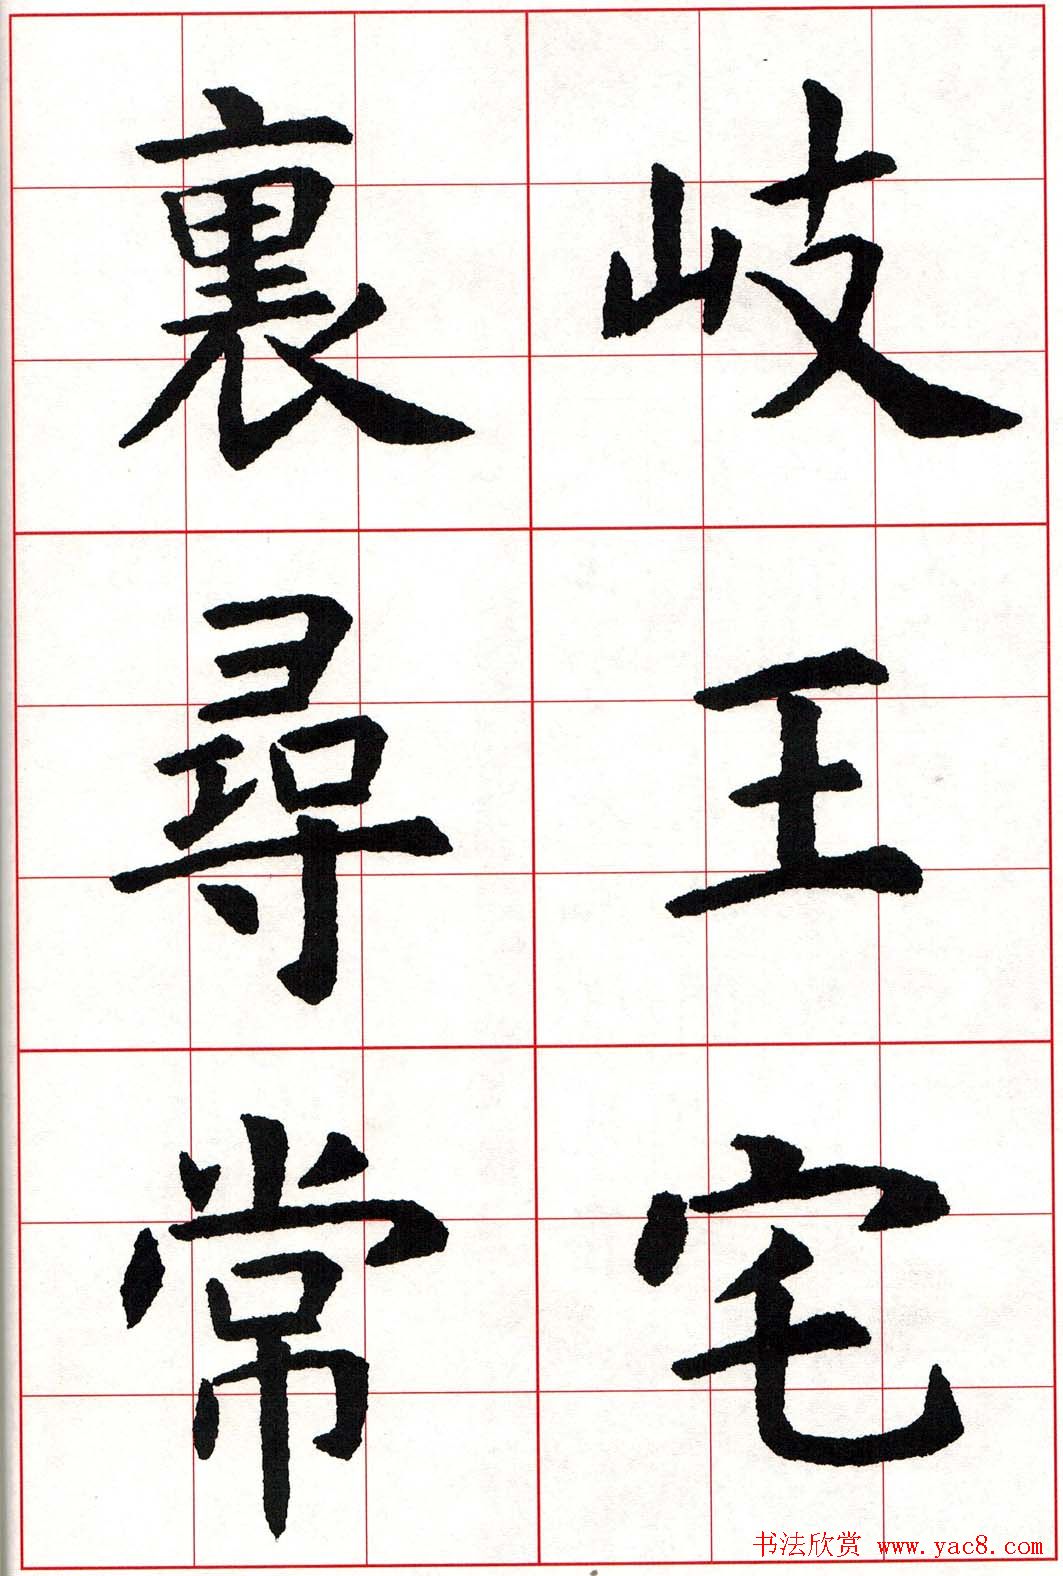 岐王宅
裏尋常
书法欣赏 www.yac8.com